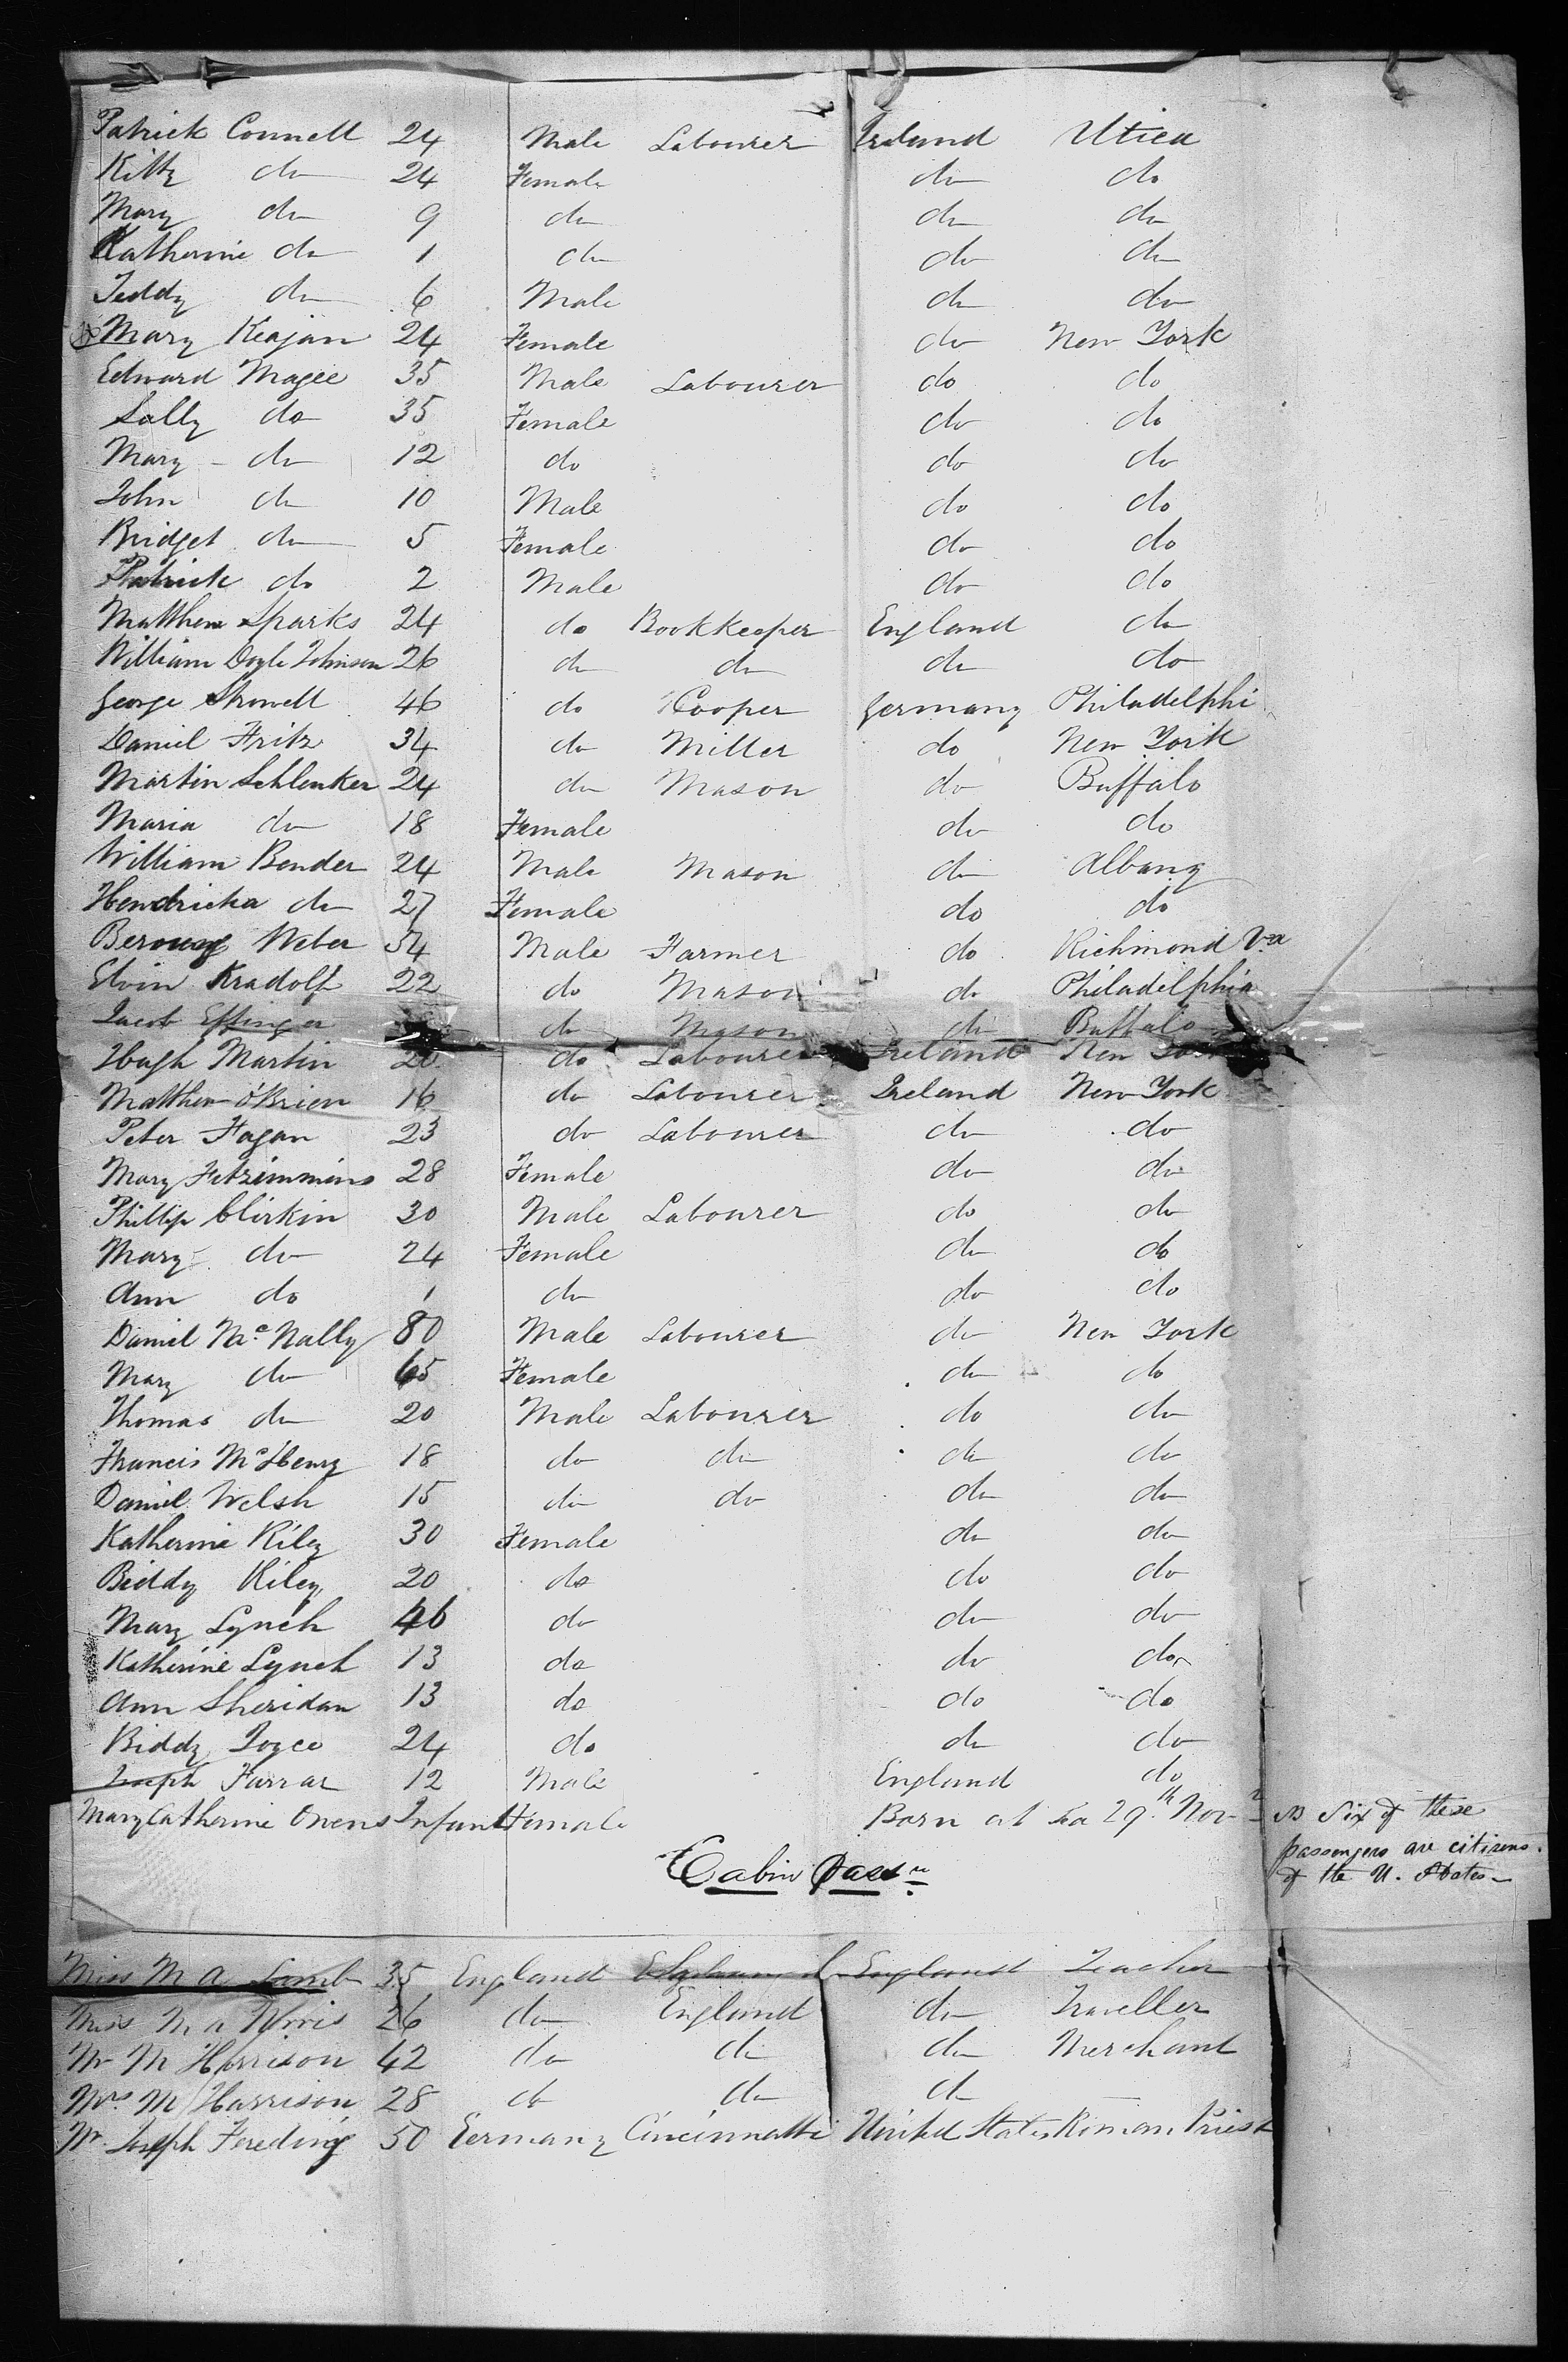 Patrick Connell 24 Male Labourer Ireland Utica
Kitty do 24 Female do do
Mary do 9 do do do
Katherine do 1 do do do
Teddy do 6 Male do do
Mary Keajan 24 Female do New York
Edward Magee 35 Male Labourer do do
Sally do 35 Female do do
Mary do 12 do do do
John do 10 Male do do
Bridget do 5 Female do do
Patrick do 2 Male do do
Matthew Sparks 24 do Bookkeeper England do
William Doyle Johnson 26 do do do do
George Showell 46 do Cooper Germany Philadelphi
Daniel Fritz 34 do Miller do New York
Martin Schlenker 24 do Mason do Buffalo
Maria do 18 Female do do
William Bender 24 Male Mason do Albany
Hendricka do 27 Female do do
Weber 34 Male Farmer do Richmond Va
Elvin Kradolf 22 do Mason do Philadelphia
Jacob Effinger do Mason do Buffalo
Hugh Martin 20 do Labourer Ireland New York
Matthew O'Brien 16 do Labourer Ireland New York
Peter Fagan 23 do Labourer do do
Mary Fetzimmins 28 Female do do
Phillip Clirkin 30 Male Labourer do do
Mary do 24 Female do do
Ann do 1 do do do
Daniel McNally 80 Male Labourer do New York
Mary do 65 Female do do
Thomas do 20 Male Labourer do do
Francis McHenry 18 do do do do
Daniel Welsh 15 do do do do
Katherine Riley 30 Female do do
Biddy Riley 20 do do do
Mary Lynch 46 do do do
Katherine Lynch 13 do do do
Ann Sheridan 13 do do do
Biddy Joyce 24 do do do
Joseph Farrar 12 Male England do
Mary Catherine Owens Infant Female Born at Sea 29th Nov
Six of these
passengers are citizens
of the U. States
Cabin Passrs
Miss M A Lamb 35 England England Teacher
Miss M A 26 do England do Traveller
Mr M Harrison 42 do do do Merchant
Mrs M Harrison 28 do do do
Mr Joseph Fereding 50 Germany Cincinnatti United States Roman Priest